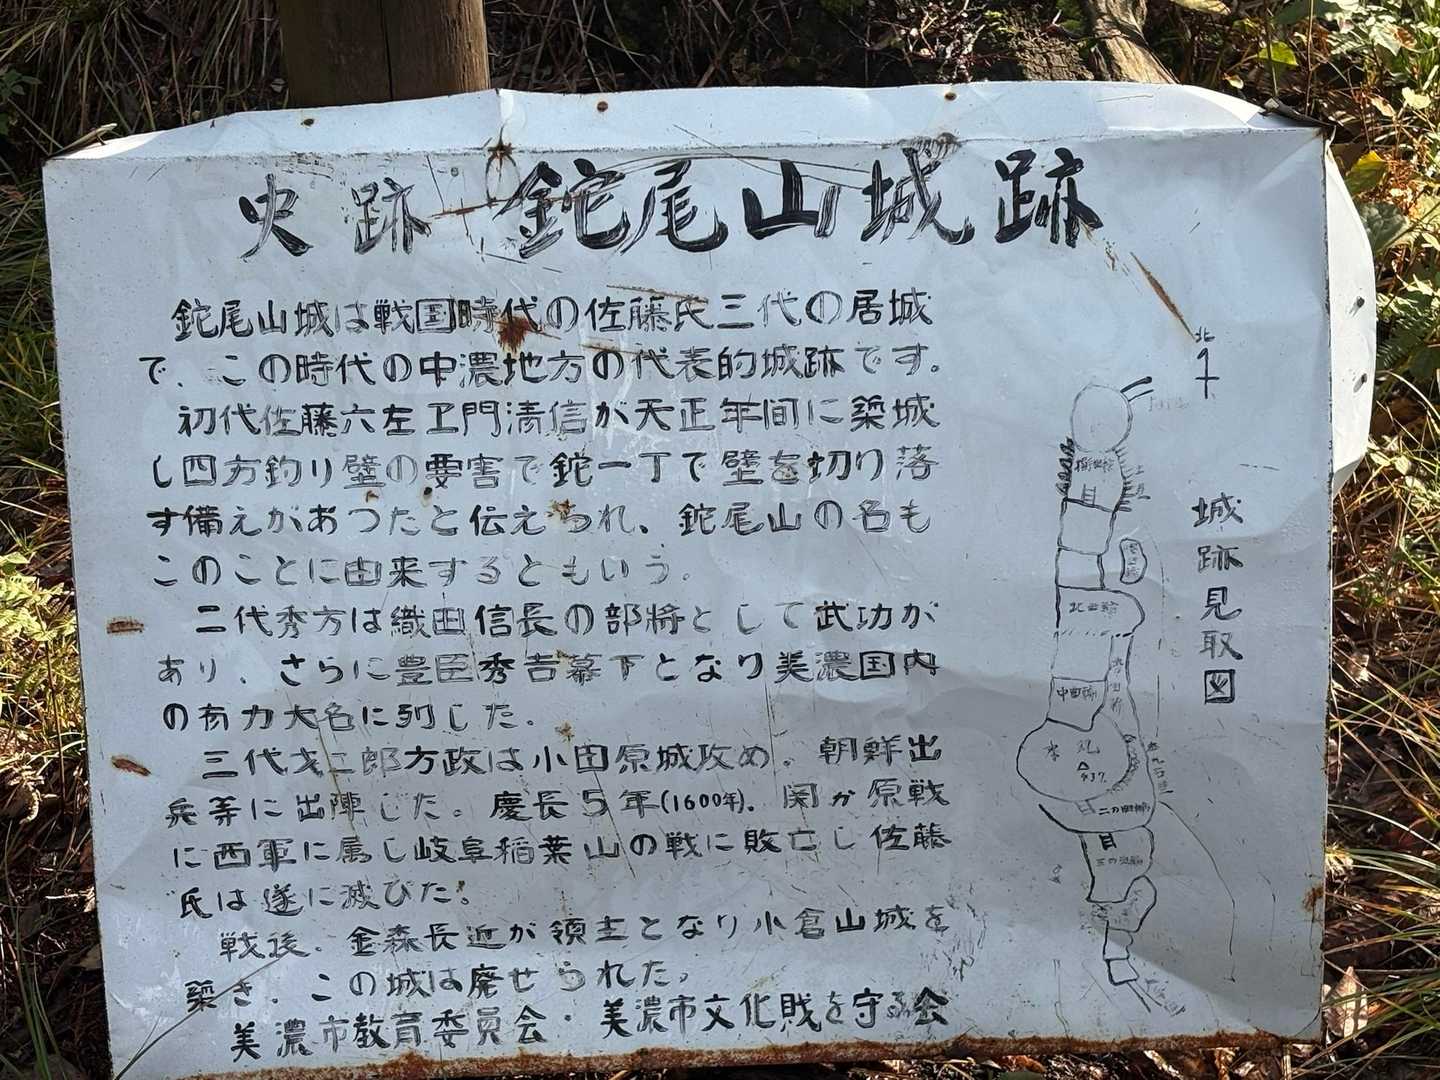 史跡 鉈尾山城跡
鉈尾山城は戦国時代の佐藤氏三代の居城
で、この時代の中濃地方の代表的城跡です。
初代佐藤六左ヱ門清信が天正年間に築城
し四方釣り壁の要害で鉈一丁で壁を切り落
す備えがあつたと伝えられ、鉈尾山の名も
このことに由来するともいう。
二代秀方は織田信長の部将として武功が
あり、さらに豊臣秀吉幕下となり美濃国内
の有力大名に列した。
三代才二郎方政は小田原城攻め。朝鮮出
兵等に出陣した。慶長5年(1600年)、関ヵ原戦
に西軍に属し岐阜稲葉山の戦に敗亡し佐藤
氏は遂に滅びた。
戦後、金森長近が領主となり小倉山城を
築き、この城は廃せられた。
美濃市教育委員会・美濃市文化財を守る会
北
城跡見取図
北曲輪
中曲輪
本丸
437
二の曲輪
三の曲輪